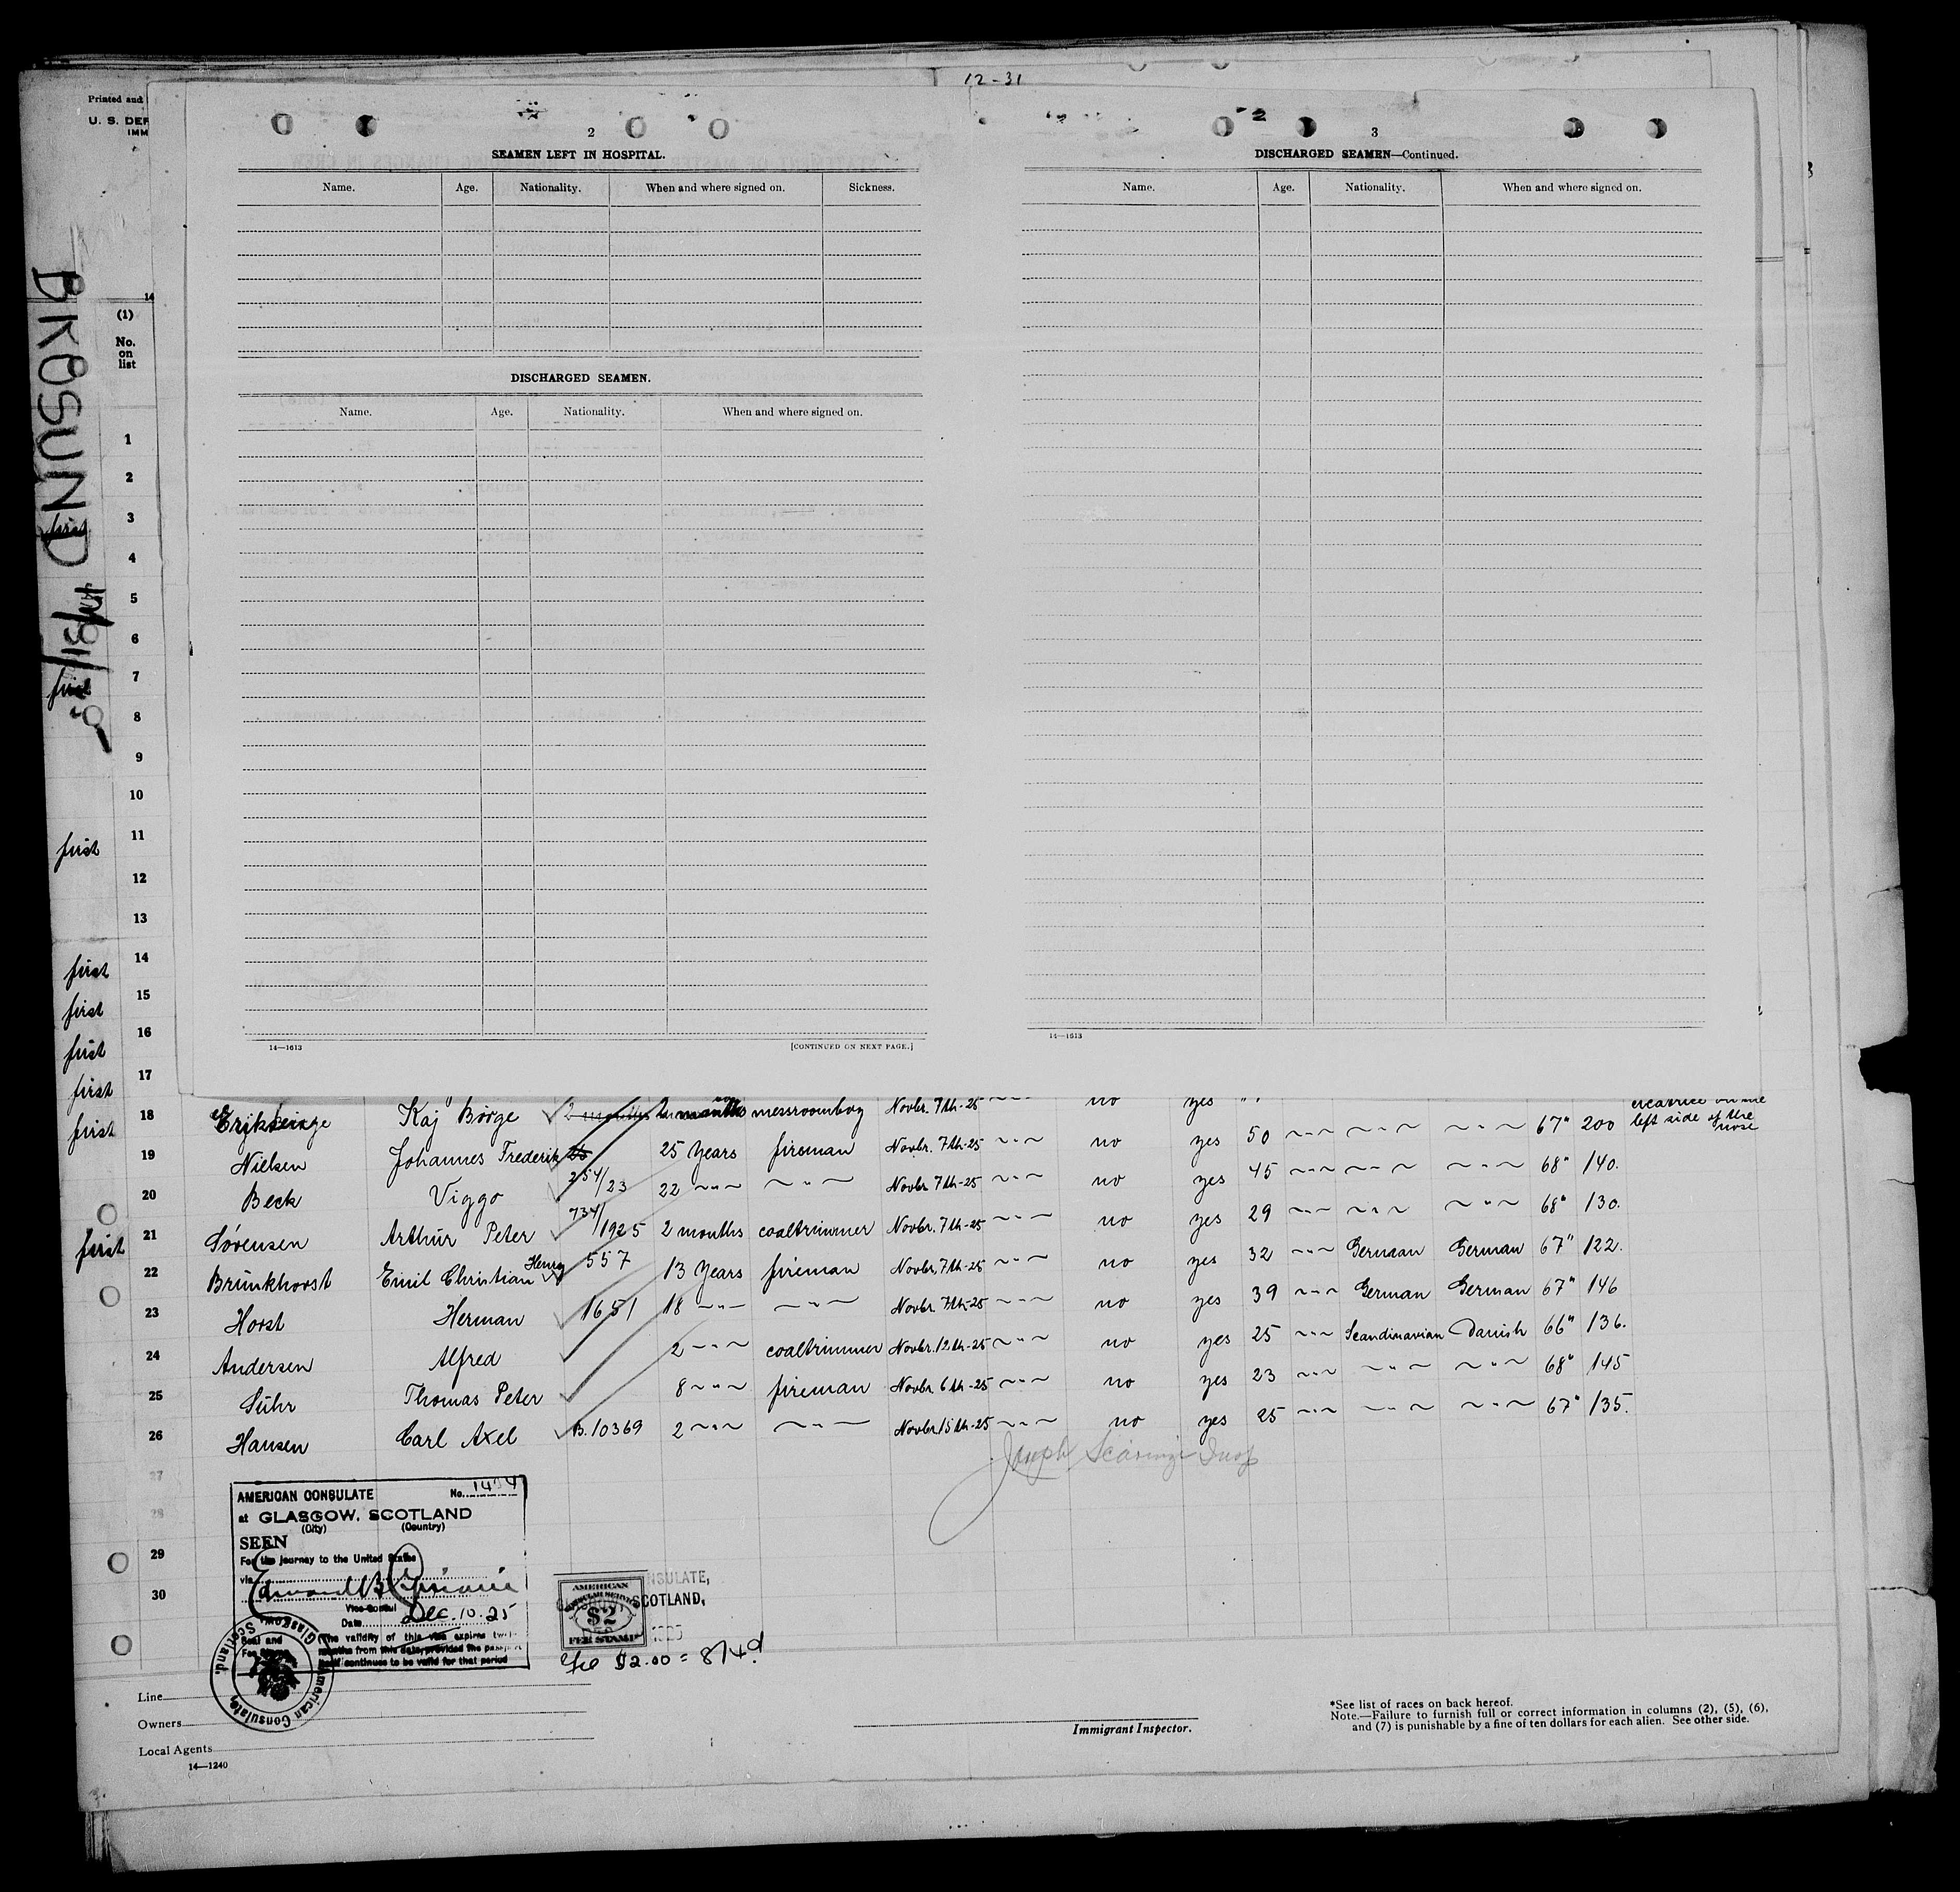 12-31
Printed and
U. S. DEP
IMM
2
SEAMEN LEFT IN HOSPITAL.
Name. Age. Nationality. When and where signed on. Sickness.
DISCHARGED SEAMEN.
Name. Age. Nationality. When and where signed on.
14—1613
[CONTINUED ON NEXT PAGE.]
3
DISCHARGED SEAMEN—Continued.
Name. Age. Nationality. When and where signed on.
14—1613
BROSUND
14
(1)
No.
on
list
1
2
3
4
5
6
7
first
8
9
10
11
first
12
13
14
first
15
first
16
first
17
first
18 Kaj Börge 2 months messroomboy Novbr. 7th-25 ~"~ no yes
first
cicatrice on the
left side of the
nose
19 Nielsen Johannes Frederik 25 Years fireman Novbr. 7th-25 ~"~ no yes 50 ~"~ ~"~ ~"~ 67" 200
20 Beck Viggo 254/23 22 ~"~ ~"~ Novbr 7th-25 ~"~ no yes 45 ~"~ ~"~ ~"~ 68" 140.
21 Sörensen Arthur Peter 734/1925 2 months coaltrimmer Novbr. 7th-25 ~"~ no yes 29 ~"~ ~"~ ~"~ 68" 130.
first
22 Brünkhorst Emil Christian Henry 557 13 Years fireman Novbr. 7th-25 ~"~ no yes 32 ~"~ German German 67" 122.
23 Horst Herman 1651 18 ~"~ ~"~ Novbr. 7th-25 ~"~ no yes 39 ~"~ German German 67" 146
24 Andersen Alfred 2 ~"~ coaltrimmer Novbr. 12th-25 ~"~ no yes 25 ~"~ Scandinavian Danish 66" 136.
25 Sühr Thomas Peter 8 ~"~ fireman Novbr. 6th-25 ~"~ no yes 23 ~"~ ~"~ ~"~ 68" 145
26 Hansen Carl Axel B. 10369 2 ~"~ ~"~ Novbr. 15th-25 ~"~ no yes 25 ~"~ ~"~ ~"~ 67" 135.
Joseph
27
28
29
30
AMERICAN CONSULATE No.
at GLASGOW, SCOTLAND
(City) (Country)
SEEN
For the journey to the United States
via
Vice-Consul
Date Dec. 10. 25
Seal and
(The validity of this visa expires
months from this date, provided the
continues to be valid for that period
American Consulate, Glasgow, Scotland.
NSULATE,
SCOTLAND,
AMERICAN
$2
FEE STAMP
Fee $2.00 = 8/4d
Line
Owners
Local Agents
14—1240
Immigrant Inspector.
*See list of races on back hereof.
Note.—Failure to furnish full or correct information in columns (2), (5), (6),
and (7) is punishable by a fine of ten dollars for each alien. See other side.